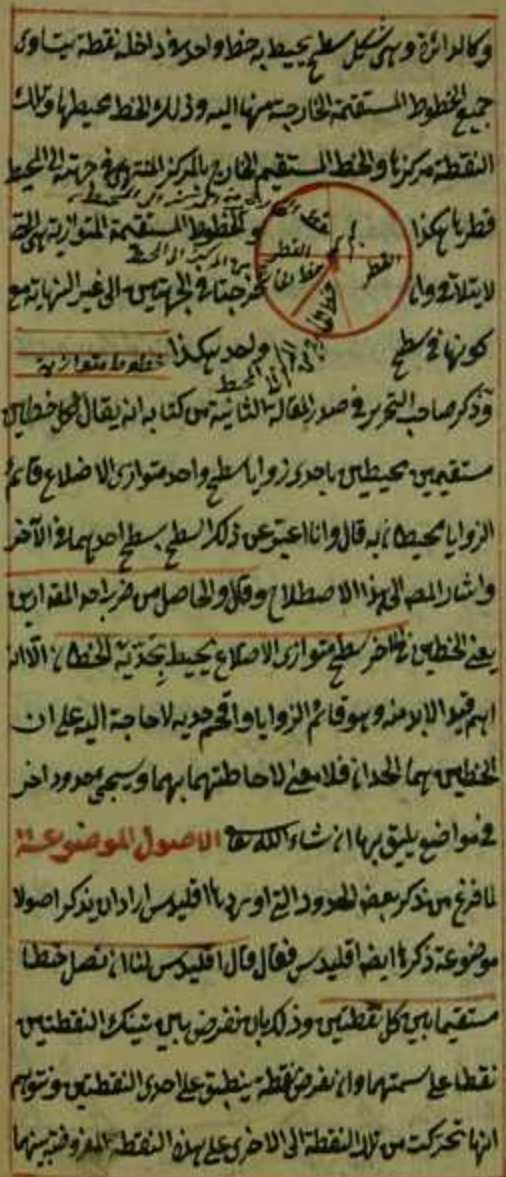 وكالدائرة وهي شكل سطح يحيط به خط واحد في داخله نقطة يتساوى
جميع الخطوط المستقيمة الخارجة منها اليه وذلك الخط محيطها وتلك
النقطة مركزها والخط المستقيم الخارج بالمركز المنتهى في جهتيه الى المحيط
قطرها هكذا
القطر
القطر
والخطوط المستقيمة المتوازية هي التي
لا يتلاقى وان اخرجتا في الجهتين الى غير النهاية مع
كونها في سطح واحد هكذا خطوط متوازية
وذكر صاحب التحرير في صدر المقالة الثانية من كتابه انه يقال لكل خطين
مستقيمين محيطين باحدى زوايا سطح واحد متوازى الاضلاع قائم
الزوايا محيطان به قال وانا اعبر عن ذلك السطح بسطح احدهما في الآخر
واشار المصـ الى هذا الاصطلاح وقال والحاصل من ضرب احد المقدارين
يعنى الخطين في الآخر سطح متوازى الاضلاع يحيط به الخطان الا انه
اهم قيد الابد منه وهو قائم الزوايا واقحم حديه لا حاجة اليه على ان
الخطين هما الحدان فلا معنى لاحاطتهما بهما وسيجئ حدود اخر
في مواضع يليق بها ان شاء الله تعالى الاصول الموضوعة
لما فرغ من ذكر بعض الحدود التي اوردها اقليدس اراد ان يذكر اصولا
موضوعة ذكرها ايضا اقليدس فقال قال اقليدس لنا ان نصل خطا
مستقيما بين كل نقطتين وذلك بان نفرض بين تينك النقطتين
نقطا على سمتهما وان نفرض نقطة ينطبق على احدى النقطتين ونتوهم
انها تحركت من تلك النقطة الى الاخرى على هذه النقطة المفروضة بينهما